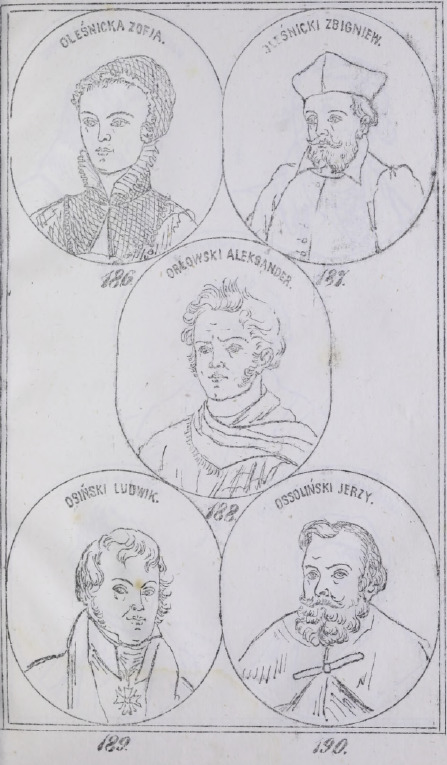 OLEŚNICKA ZOFIA.
OLEŚNICKI ZBIGNIEW.
186.
187.
ORŁOWSKI ALEKSANDER.
188.
OSIŃSKI LUDWIK.
OSSOLIŃSKI JERZY.
189.
190.